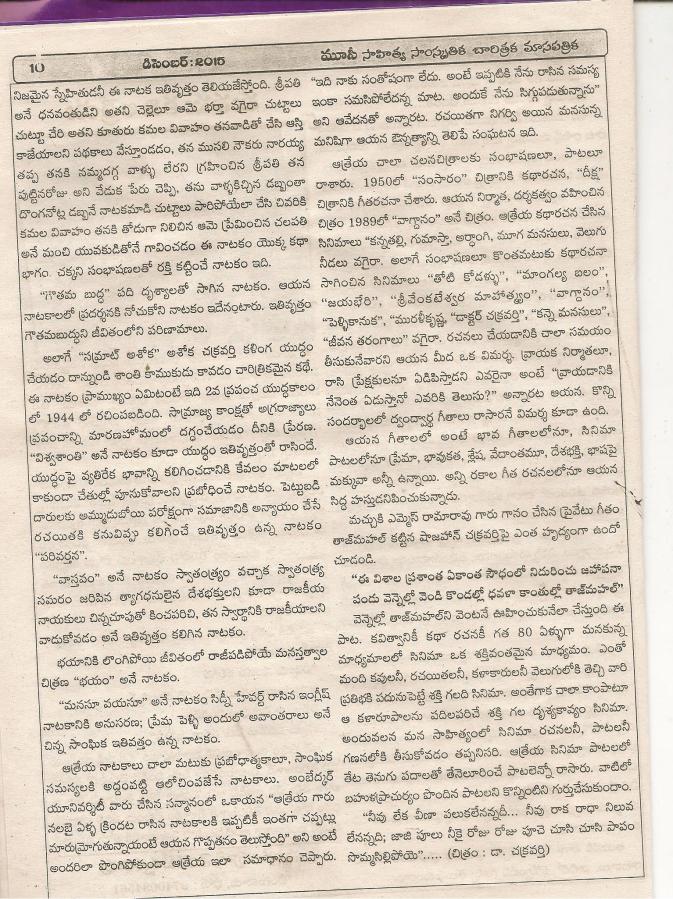 10
డిసెంబర్ : 2015
మూసీ సాహిత్య సాంస్కృతిక చారిత్రక మాసపత్రిక
నిజమైన స్నేహితుడనీ ఈ నాటక ఇతివృత్తం తెలియజేస్తోంది. శ్రీపతి
అనే ధనవంతుడిని అతని చెల్లెలూ ఆమె భర్తా వగైరా చుట్టాలు
చుట్టూ చేరి అతని కూతురు కమల వివాహం తనవాడితో చేసి ఆస్తి
కాజేయాలని పథకాలు వేస్తూండడం, తన ముసలి నౌకరు నారయ్య
తప్ప తనకి నమ్మదగ్గ వాళ్ళు లేరని గ్రహించిన శ్రీపతి తన
పుట్టినరోజు అని వేడుక పేరు చెప్పి, తను వాళ్ళకిచ్చిన డబ్బంతా
దొంగనోట్ల డబ్బనే నాటకమాడి చుట్టాలు పారిపోయేలా చేసి చివరికి
కమల వివాహం తనకి తోడుగా నిలిచిన ఆమె ప్రేమించిన చలపతి
అనే మంచి యువకుడితోనే గావించడం ఈ నాటకం యొక్క కథా
భాగం. చక్కని సంభాషణలతో రక్తి కట్టించే నాటకం ఇది.
"గౌతమ బుద్ధ" పది దృశ్యాలతో సాగిన నాటకం. ఆయన
నాటకాలలో ప్రదర్శనకి నోచుకోని నాటకం ఇదేనంటారు. ఇతివృత్తం
గౌతమబుద్ధుని జీవితంలోని పరిణామాలు.
అలాగే "సమ్రాట్ అశోక" అశోక చక్రవర్తి కళింగ యుద్ధం
చేయడం దాన్నుండి శాంతి కాముకుడు కావడం చారిత్రికమైన కథే.
ఈ నాటకం ప్రాముఖ్యం ఏమిటంటే ఇది 2వ ప్రపంచ యుద్ధకాలం
లో 1944 లో రచింపబడింది. సామ్రాజ్య కాంక్షతో అగ్రరాజ్యాలు
ప్రపంచాన్ని మారణహోమంలో దగ్ధంచేయడం దీనికి ప్రేరణ.
"విశ్వశాంతి" అనే నాటకం కూడా యుద్ధం ఇతివృత్తంతో రాసిందే.
యుద్ధంపై వ్యతిరేక భావాన్ని కలిగించడానికి కేవలం మాటలలో
కాకుండా చేతుల్లో పూనుకోవాలని ప్రబోధించే నాటకం. పెట్టుబడి
దారులకు అమ్ముడుబోయి పరోక్షంగా సమాజానికి అన్యాయం చేసే
రచయితకి కనువిప్పు కలిగించే ఇతివృత్తం ఉన్న నాటకం
"పరివర్తన".
"వాస్తవం" అనే నాటకం స్వాతంత్ర్యం వచ్చాక స్వాతంత్ర్య
సమరం జరిపిన త్యాగధనులైన దేశభక్తులని కూడా రాజకీయ
నాయకులు చిన్నచూపుతో కించపరిచి, తన స్వార్థానికి రాజకీయాలని
వాడుకోవడం అనే ఇతివృత్తం కలిగిన నాటకం.
భయానికి లొంగిపోయి జీవితంలో రాజీపడిపోయే మనస్తత్వాల
చిత్రణ "భయం" అనే నాటకం.
"మనసూ వయసూ" అనే నాటకం సిడ్నీ హేవర్డ్ రాసిన ఇంగ్లీష్
నాటకానికి అనుసరణ; ప్రేమ పెళ్ళి అందులో అవాంతరాలు అనే
చిన్న సాంఘిక ఇతివృత్తం ఉన్న నాటకం.
ఆత్రేయ నాటకాలు చాలా మటుకు ప్రబోధాత్మకాలూ, సాంఘిక
సమస్యలకి అద్దంపట్టి ఆలోచింపజేసే నాటకాలు. అంబేద్కర్
యూనివర్శిటీ వారు చేసిన సన్మానంలో ఒకాయన "ఆత్రేయ గారు
నలభై ఏళ్ళ క్రిందట రాసిన నాటకాలకి ఇప్పటికీ ఇంతగా చప్పట్లు
మారుమ్రోగుతున్నాయంటే ఆయన గొప్పతనం తెలుస్తోంది" అని అంటే
అందరిలా పొంగిపోకుండా ఆత్రేయ ఇలా సమాధానం చెప్పారు.
"ఇది నాకు సంతోషంగా లేదు. అంటే ఇప్పటికి నేను రాసిన సమస్య
ఇంకా సమసిపోలేదన్న మాట. అందుకే నేను సిగ్గుపడుతున్నాను"
అని ఆవేదనతో అన్నారట. రచయితగా నిగర్వి అయిన మనసున్న
మనిషిగా ఆయన ఔన్నత్యాన్ని తెలిపే సంఘటన ఇది.
ఆత్రేయ చాలా చలనచిత్రాలకు సంభాషణలూ, పాటలూ
రాశారు. 1950లో "సంసారం" చిత్రానికి కథారచన, "దీక్ష"
చిత్రానికి గీతరచనా చేశారు. ఆయన నిర్మాత, దర్శకత్వం వహించిన
చిత్రం 1989లో "వాగ్దానం" అనే చిత్రం. ఆత్రేయ కథారచన చేసిన
సినిమాలు "కన్నతల్లి, గుమాస్తా, అర్ధాంగి, మూగ మనసులు, వెలుగు
నీడలు వగైరా. అలాగే సంభాషణలూ కొంతమటుకు కథారచనా
సాగించిన సినిమాలు "తోటి కోడళ్ళు", "మాంగల్య బలం",
"జయభేరి", "శ్రీవెంకటేశ్వర మాహాత్మ్యం", "వాగ్దానం",
"పెళ్ళికానుక", "మురళీకృష్ణ, "డాక్టర్ చక్రవర్తి", "కన్నె మనసులు",
"జీవన తరంగాలు" వగైరా. రచనలు చేయడానికి చాలా సమయం
తీసుకునేవారని ఆయన మీద ఒక విమర్శ. వ్రాయక నిర్మాతలూ,
రాసి ప్రేక్షకులనూ ఏడిపిస్తాడని ఎవరైనా అంటే "వ్రాయడానికి
నేనెంత ఏడుస్తానో ఎవరికి తెలుసు?" అన్నారట ఆయన. కొన్ని
సందర్భాలలో ద్వంద్వార్థ గీతాలు రాసారనే విమర్శ కూడా ఉంది.
ఆయన గీతాలలో అంటే భావ గీతాలలోనూ, సినిమా
పాటలలోనూ ప్రేమా, భావుకత, శ్లేష, వేదాంతమూ, దేశభక్తి, భాషపై
మక్కువా అన్నీ ఉన్నాయి. అన్ని రకాల గీత రచనలలోనూ ఆయన
సిద్ధ హస్తుడనిపించుకున్నాడు.
మచ్చుకి ఎమ్మెస్ రామారావు గారు గానం చేసిన ప్రైవేటు గీతం
తాజ్‌మహల్ కట్టిన షాజహాన్ చక్రవర్తిపై ఎంత హృద్యంగా ఉందో
చూడండి.
"ఈ విశాల ప్రశాంత ఏకాంత సౌధంలో నిదురించు జహాపనా
పండు వెన్నెల్లో వెండి కొండల్లో ధవళా కాంతుల్లో తాజ్‌మహల్"
వెన్నెల్లో తాజ్‌మహల్‌ని వెంటనే ఊహించుకునేలా చేస్తుంది ఈ
పాట. కవిత్వానికీ కథా రచనకీ గత 80 ఏళ్ళుగా మనకున్న
మాధ్యమాలలో సినిమా ఒక శక్తివంతమైన మాధ్యమం. ఎంతో
మంది కవులనీ, రచయితలనీ, కళాకారులనీ వెలుగులోకి తెచ్చి వారి
ప్రతిభకి పదునుపెట్టే శక్తి గలది సినిమా. అంతేగాక చాలా కాంపాటూ
ఆ కళారూపాలను పదిలపరిచే శక్తి గల దృశ్యకావ్యం సినిమా.
అందువలన మన సాహిత్యంలో సినిమా రచనలనీ, పాటలనీ
గణనలోకి తీసుకోవడం తప్పనిసరి. ఆత్రేయ సినిమా పాటలలో
తేట తెనుగు పదాలతో తేనెలూరించే పాటలెన్నో రాసారు. వాటిలో
బహుళప్రాచుర్యం పొందిన పాటలని కొన్నింటిని గుర్తుచేసుకుందాం.
"నీవు లేక వీణా పలుకలేనన్నదీ... నీవు రాక రాధా నిలువ
లేనన్నది; జాజి పూలు నీకై రోజు రోజు పూచె చూసి చూసి పాపం
సొమ్మసిల్లిపోయె"..... (చిత్రం : డా. చక్రవర్తి)